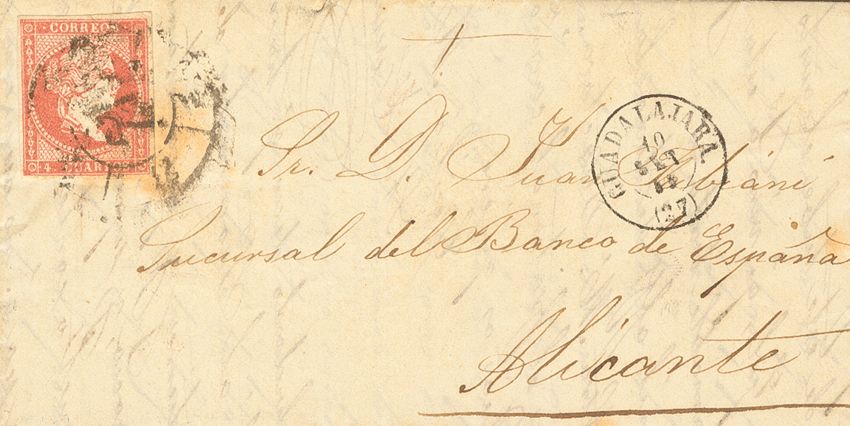 CORREOS
4 CUAR
GUADALAJARA.
10
SET
(27)
Sr. D. Juan
Sucursal del Banco de España
Alicante